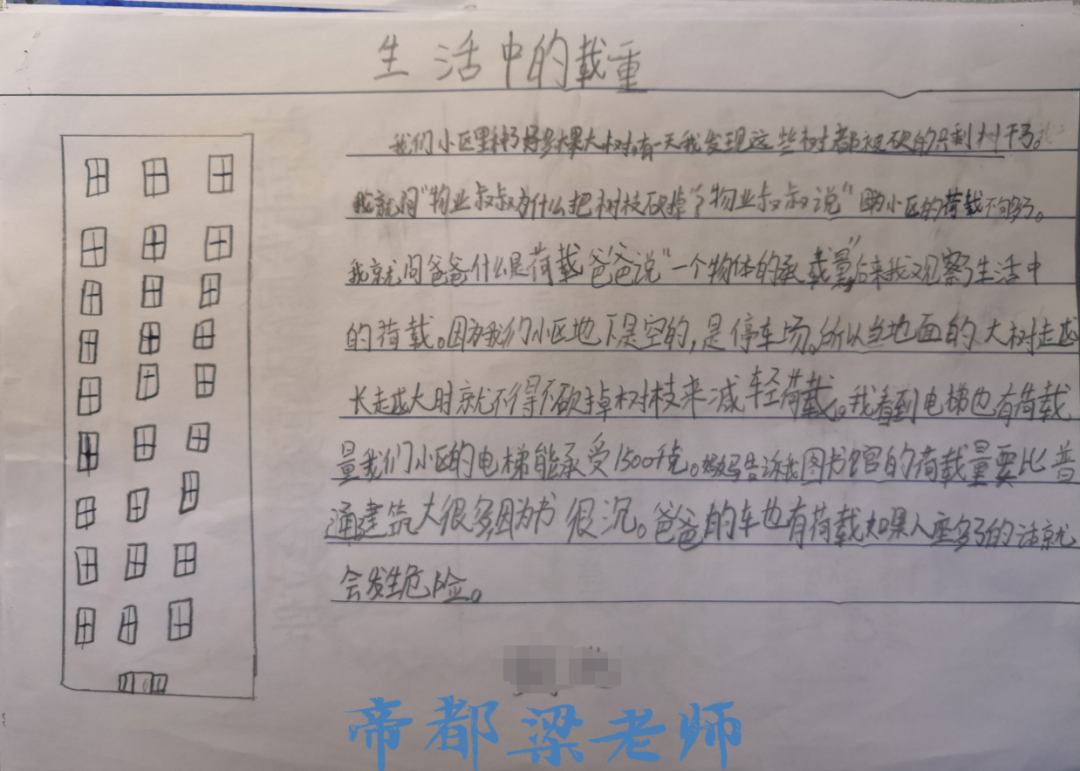 生活中的载重
我们小区里种了好多棵大树有一天我发现这些树都被砍的只剩树干了。
我就问"物业叔叔为什么把树枝砍掉了"物业叔叔说"因为小区的荷载不够了。
我就问爸爸什么是荷载爸爸说"一个物体的承载量"后来我又观察了生活中
的荷载。因为我们小区地下是空的,是停车场。所以当地面的大树越
长越大时就不得不砍掉树枝来减轻荷载。我看到电梯也有荷载
量我们小区的电梯能承受1500千克。妈妈告诉我图书馆的荷载量要比普
通建筑大很多因为书很沉。爸爸的车也有荷载如果人座多了的话就
会发生危险。
帝都梁老师